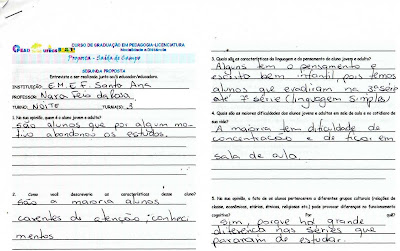 CURSO DE GRADUAÇÃO EM PEDAGOGIA-LICENCIATURA
Modalidade a Distância
PEAD
Proposta - Saída de Campo
SEGUNDA PROPOSTA
Entrevista a ser realizada junto ao/à educador/educadora.
INSTITUIÇÃO: E.M.E.F. Santo Ana
PROFESSOR: Nara
TURNO: NOITE TURMA(S): 3
1. Na sua opinião, quem é o aluno jovem e adulto?
São alunos que por algum mo-
tivo abandonou os estudos.
2. Como você descreveria as características desse aluno?
São a maioria alunos
carentes de atenção, conheci-
mentos
3. Quais são as características da linguagem e do pensamento do aluno jovem e adulto?
Alguns tem o pensamento e
escrito bem infantil, pois temos
alunos que evadiram na 3ª série
até 7ª série (linguagem simples)
4. Quais são as maiores dificuldades dos alunos jovens e adultos em sala de aula e no cotidiano de
sua vida?
A maioria tem dificuldade de
concentração e de ficar em
sala de aula.
5. Na sua opinião, o fato de os alunos pertencerem a diferentes grupos culturais (relações de
classe, econômicas, etárias, étnicas, religiosas etc.) pode provocar diferenças no funcionamento
cognitivo? Por quê?
Sim, porque há grande
diferença nas séries que
pararam de estudar.